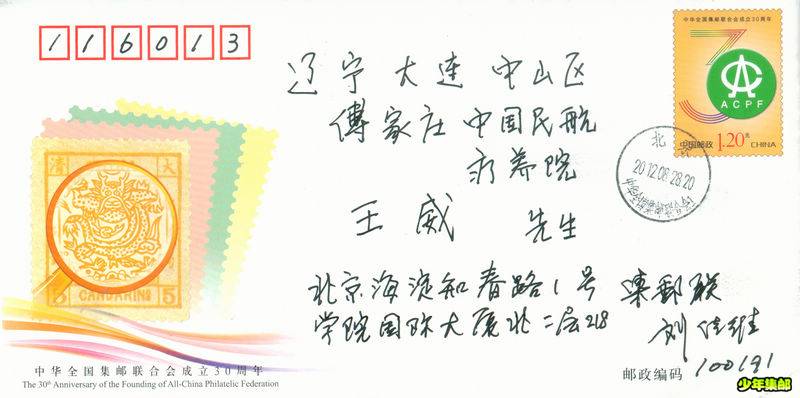 116013
中华全国集邮联合会成立30周年
ACPF
中国邮政 1.20元 CHINA
辽宁 大连 中山区
傅家庄 中国民航
疗养院
王威 先生
北京
2012.08.28.20
清 大
5 CANDARINS 5
北京海淀知春路1号 集邮联
学院国际大厦北二层218 刘佳维
100191
中华全国集邮联合会成立30周年
The 30th Anniversary of the Founding of All-China Philatelic Federation
邮政编码
少年集邮